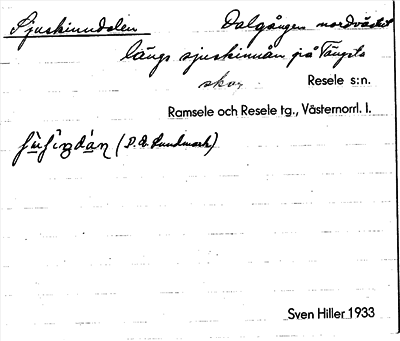 Sjuskinndalen Dalgången nordväst
längs sjuskinnån på Tängsta
skog
Resele s:n.
Ramsele och Resele tg., Västernorrl. l.
(P. A. Sundmark)
Sven Hiller 1933